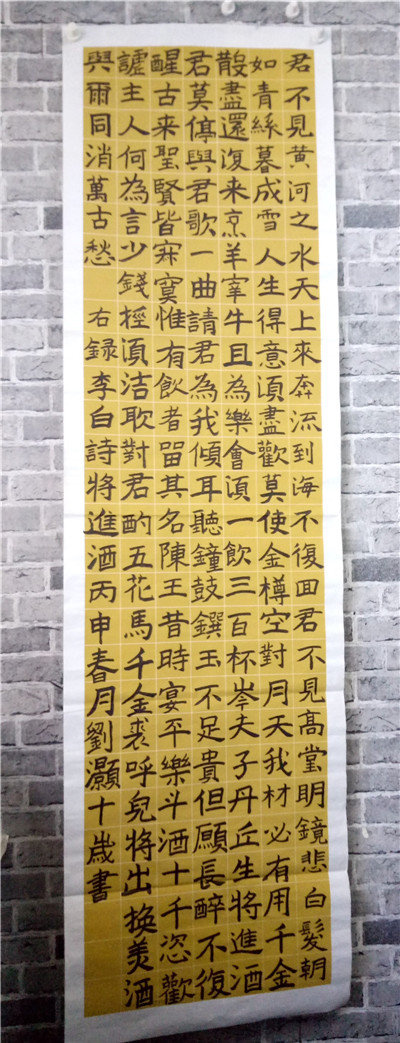 君不見黄河之水天上來奔流到海不復回君不見高堂明鏡悲白髮朝
如青絲暮成雪人生得意須盡歡莫使金樽空對月天我材必有用千金
散盡還復来烹羊宰牛且為樂會須一飲三百杯岑夫子丹丘生將進酒
君莫停與君歌一曲請君為我傾耳聽鐘鼓鐉玉不足貴但願長醉不復
醒古来聖賢皆寂寞惟有飲者留其名陳王昔時宴平樂斗酒十千恣歡
謔主人何為言少錢徑須洁取對君酌五花馬千金裘呼兒將出換美酒
與爾同消萬古愁 右録李白詩將進酒丙申春月劉灝十歲書